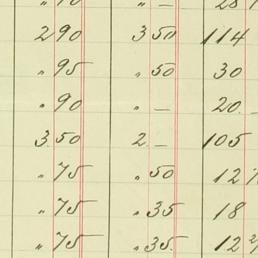 2 90 3 50 114
" 95 " 50 30
" 90 " — 20
3 50 2 — 105
" 75 " 50
" 75 " 35 18
" 75 " 35